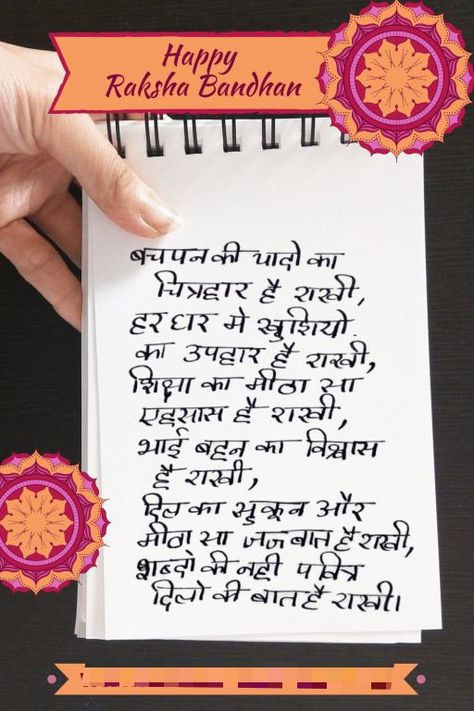 Happy
Raksha Bandhan
बचपन की यादो का
चित्रहार है राखी,
हर घर मे खुशियो
का उपहार है राखी,
शिक्षा का मीठा सा
एहसास है राखी,
भाई बहन का विश्वास
है राखी,
दिल का सुकून और
मीठा सा जजबात है राखी,
शब्दो की नही पवित्र
दिलो की बात है राखी।